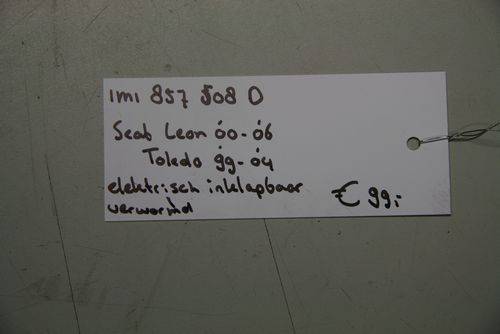 1M1 857 508 D
Seat Leon 00-06
Toledo 99-04
elektrisch inklapbaar
verwarmd € 99,-